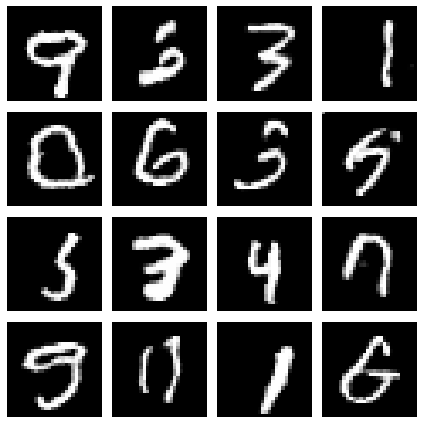 9 3 1
0 6 3 5
5 3 4
9 1 6